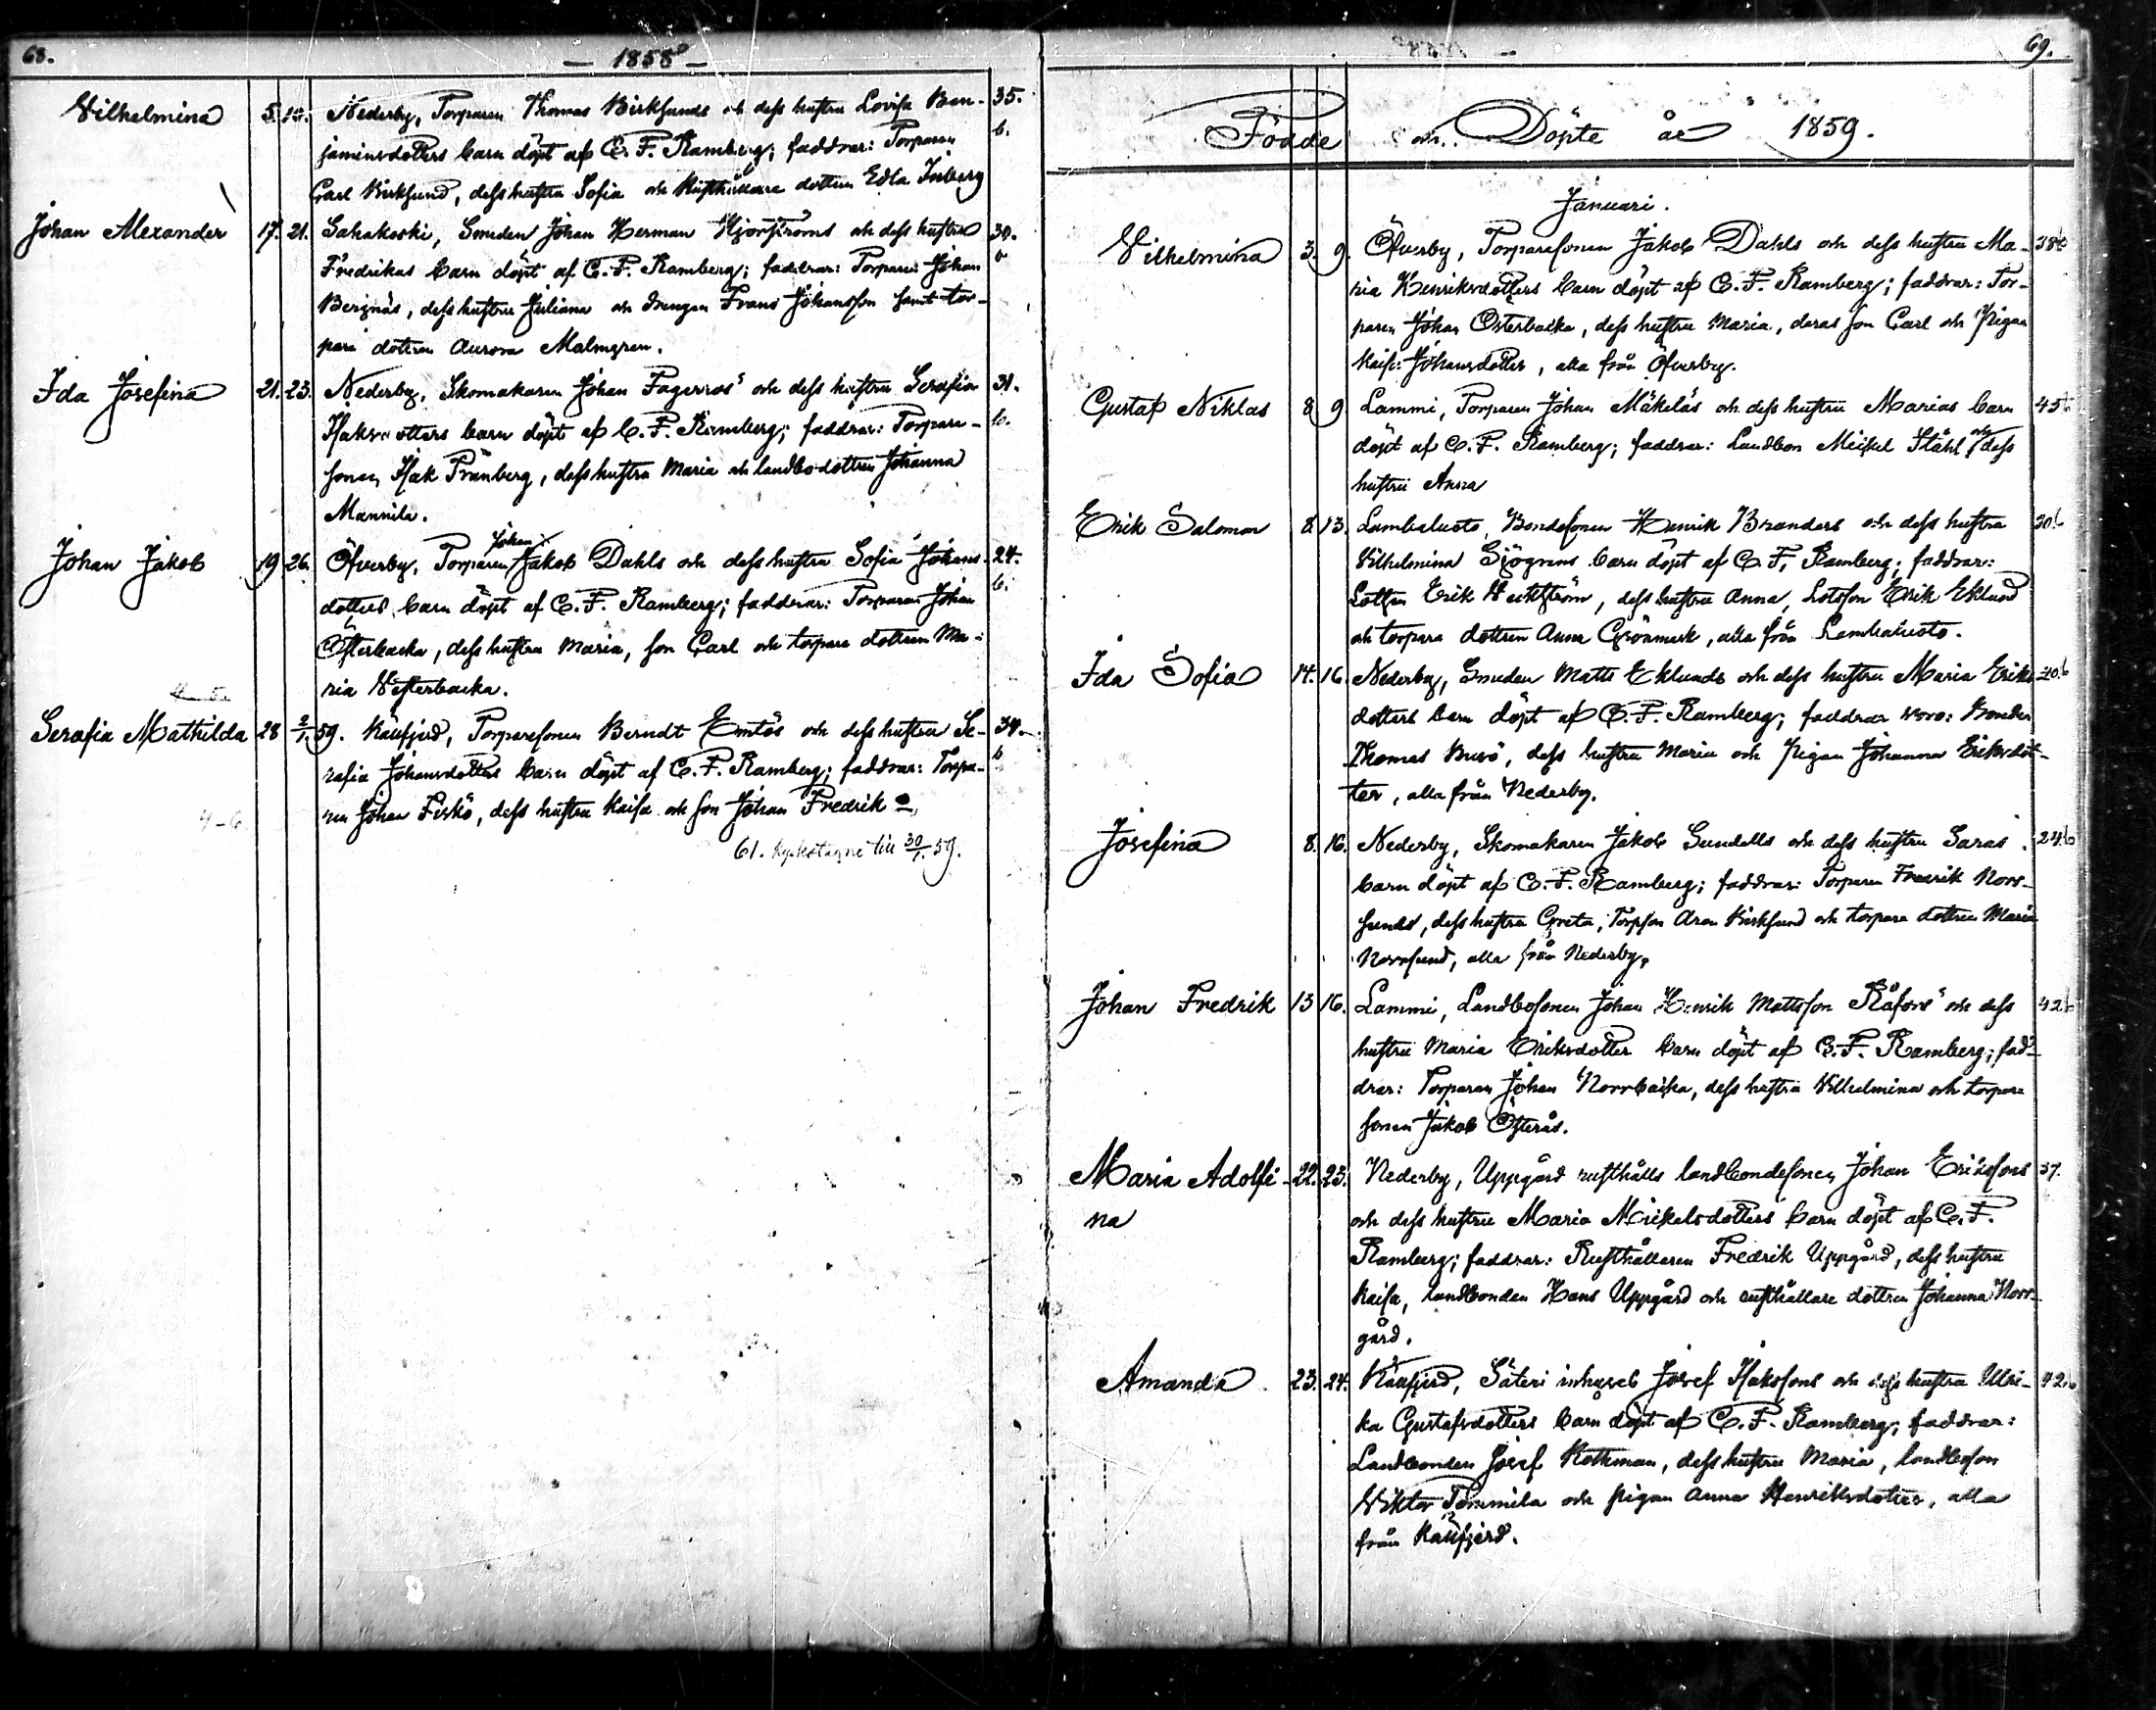 68.
— 1858 —
Vilhelmina 5. 10. Nederby, Torparen Thomas Birksunds och dess hustru Lovisa Ben- 35.
jaminsdotters barn döpt af C. F. Ramberg; faddrar: Torparen b.
Carl Birksund, dess hustru Sofia och Rusthållare dottern Edla Inberg
Johan Alexander 17. 21. Sahakoski, Smeden Johan Herman Hjortströms och dess hustru 30.
Fredrikas barn döpt af C. F. Ramberg; faddrar: Torparen Johan
Bergnäs, dess hustru Juliana och drengen Frans Johansson samt tor-
pare dottern Aurora Malmgren.
Ida Josefina 21. 23. Nederby, Skomakaren Johan Fagerros och dess hustru Serafia 31.
Isaksdotters barn döpt af C. F. Ramberg; faddrar: Torpare- b.
sonen Isak Pränberg, dess hustru Maria och landbodottren Johanna
Mannila.
Johan
Johan Jakob 19 26. Öfverby, Torparen Jakob Dahls och dess hustru Sofia Johans- 24.
dotters barn döpt af C. F. Ramberg; faddrar: Torparen Johan b.
Österbacka, dess hustru Maria, son Carl och torpare dottern Ma-
ria Westerbacka.
Serafia Mathilda 28 2/1. 59. Käufjerd, Torparesonen Berndt Emtös och dess hustru Se- 34.
rafia Johansdotters barn döpt af C. F. Ramberg; faddrar: Torpa- b
ren Johan Fiskö, dess hustru Kaisa och son Johan Fredrik
4-6
61. kyrkotagne till 30/1. 59.
69.
Födde och Döpte år 1859.
Januari.
Vilhelmina 3. 9. Öfverby, Torparesonen Jakob Dahls och dess hustru Ma- 38b
ria Henriksdotters barn döpt af C. F. Ramberg; faddrar: Tor-
paren Johan Österbacka, dess hustru Maria, deras son Carl och Pigan
Kaisa Johansdotter, alla från Öfverby.
Gustaf Niklas 8 9 Lammi, Torparen Johan Mäkeläs och dess hustru Marias barn 45b
döpt af C. F. Ramberg; faddrar: Landbon Meikel Ståhl och dess
hustru Anna
Erik Salomon 8. 13. Lambaluoto, Bondesonen Henrik Branders och dess hustru 20b
Vilhelmina Sjögrens barn döpt af C. F. Ramberg; faddrar:
Lotsen Erik Weckström, dess hustru Anna, Lotsson Erik Eklund
och torpare dottern Anna Grönmark, alla från Lambaluoto.
Ida Sofia 14. 16. Nederby, Smeden Matts Eklunds och dess hustru Maria Eriks- 20b
dotters barn döpt af C. F. Ramberg; faddrar woro: Bonden
Thomas Busö, dess hustru Maria och Pigan Johanna Eriksdot-
ter, alla från Nederby.
Josefina 8. 16. Nederby, Skomakaren Jakob Sundells och dess hustru Saras 24b
barn döpt af C. F. Ramberg; faddrar: Torparen Fredrik Norr-
sunds, dess hustru Greta, Torpson Aron Birksund och torpare dottren Maria
Norrsund, alla från Nederby.
Johan Fredrik 13 16. Lammi, Landbosonen Johan Henrik Mattsson Råfors och dess 42b
hustru Maria Eriksdotter barn döpt af C. F. Ramberg; fad-
drar: Torparen Johan Norrbacka, dess hustru Vilhelmina och torpare
sonen Jakob Österås.
Maria Adolfi- 22. 23. Nederby, Uppgård rusthålls landbondesonen Johan Erikssons 37.
na och dess hustru Maria Mickelsdotters barn döpt af C. F.
Ramberg; faddrar: Rusthållaren Fredrik Uppgård, dess hustru
Kaisa, landbonden Hans Uppgård och rusthållare dottren Johanna Norr-
gård.
Amanda 23. 24. Käufjerd, Säteri inhyses Josef Isakssons och dess hustru Ulri- 42b
ka Gustafsdotters barn döpt af C. F. Ramberg; faddrar:
Landbonden Josef Rothman, dess hustru Maria, landboson
Viktor Tommila och pigan Anna Henriksdotter, alla
från Käufjerd.